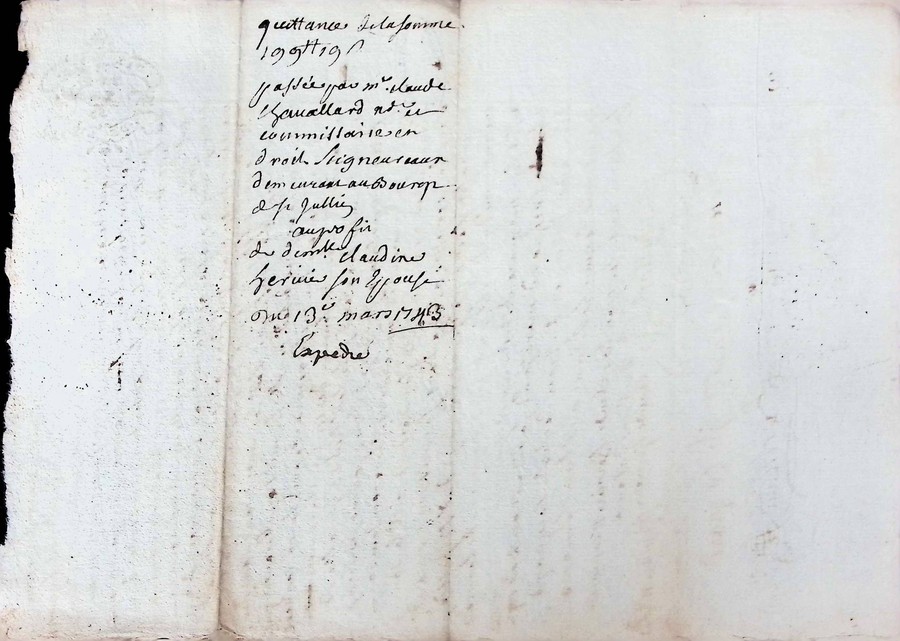 quittance de la somme
199tt 19 s
passée par mr. claude
chavallard nore. et
commissaire en
droit Seigneuriaux
demeurant au Bourg
de st Jullin
au profit
de demlle claudine
son Epouse
Du 13e mars 1743
Expedie